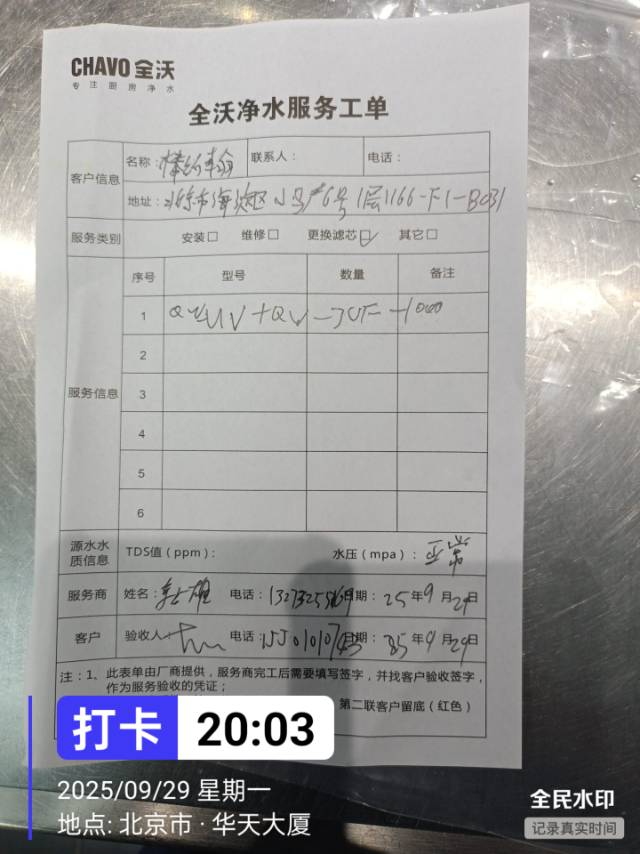 CHAVO 全沃
专注厨房净水
全沃净水服务工单
客户信息 名称：棒约翰 联系人： 电话：
地址：北京市海淀区 1层1166-F1-B031
服务类别 安装□ 维修□ 更换滤芯☑ 其它□
服务信息 序号 型号 数量 备注
1
2
3
4
5
6
源水水质信息 TDS值（ppm）： 水压（mpa）：正常
服务商 姓名： 电话： 日期：25年9月29日
客户 验收人 电话： 日期：25年9月29日
注：1、此表单由厂商提供，服务商完工后需要填写签字，并找客户验收签字，
作为服务验收的凭证；
第二联客户留底（红色）
打卡 20:03
2025/09/29 星期一
地点: 北京市·华天大厦
全民水印
记录真实时间